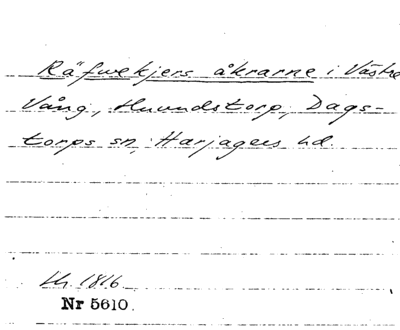 Räfwekjers åkrarne i Västre
Vång, Hunndstorp, Dags-
torps sn, Harjagers hd.
1816
Nr 5610.